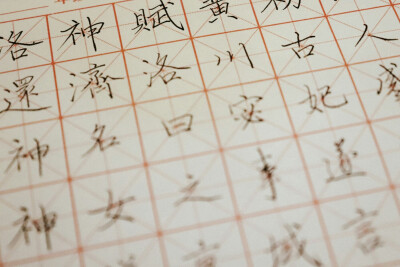 洛神賦黃初
還濟洛川古人
神名曰宓妃感
神女之事遂
京域言